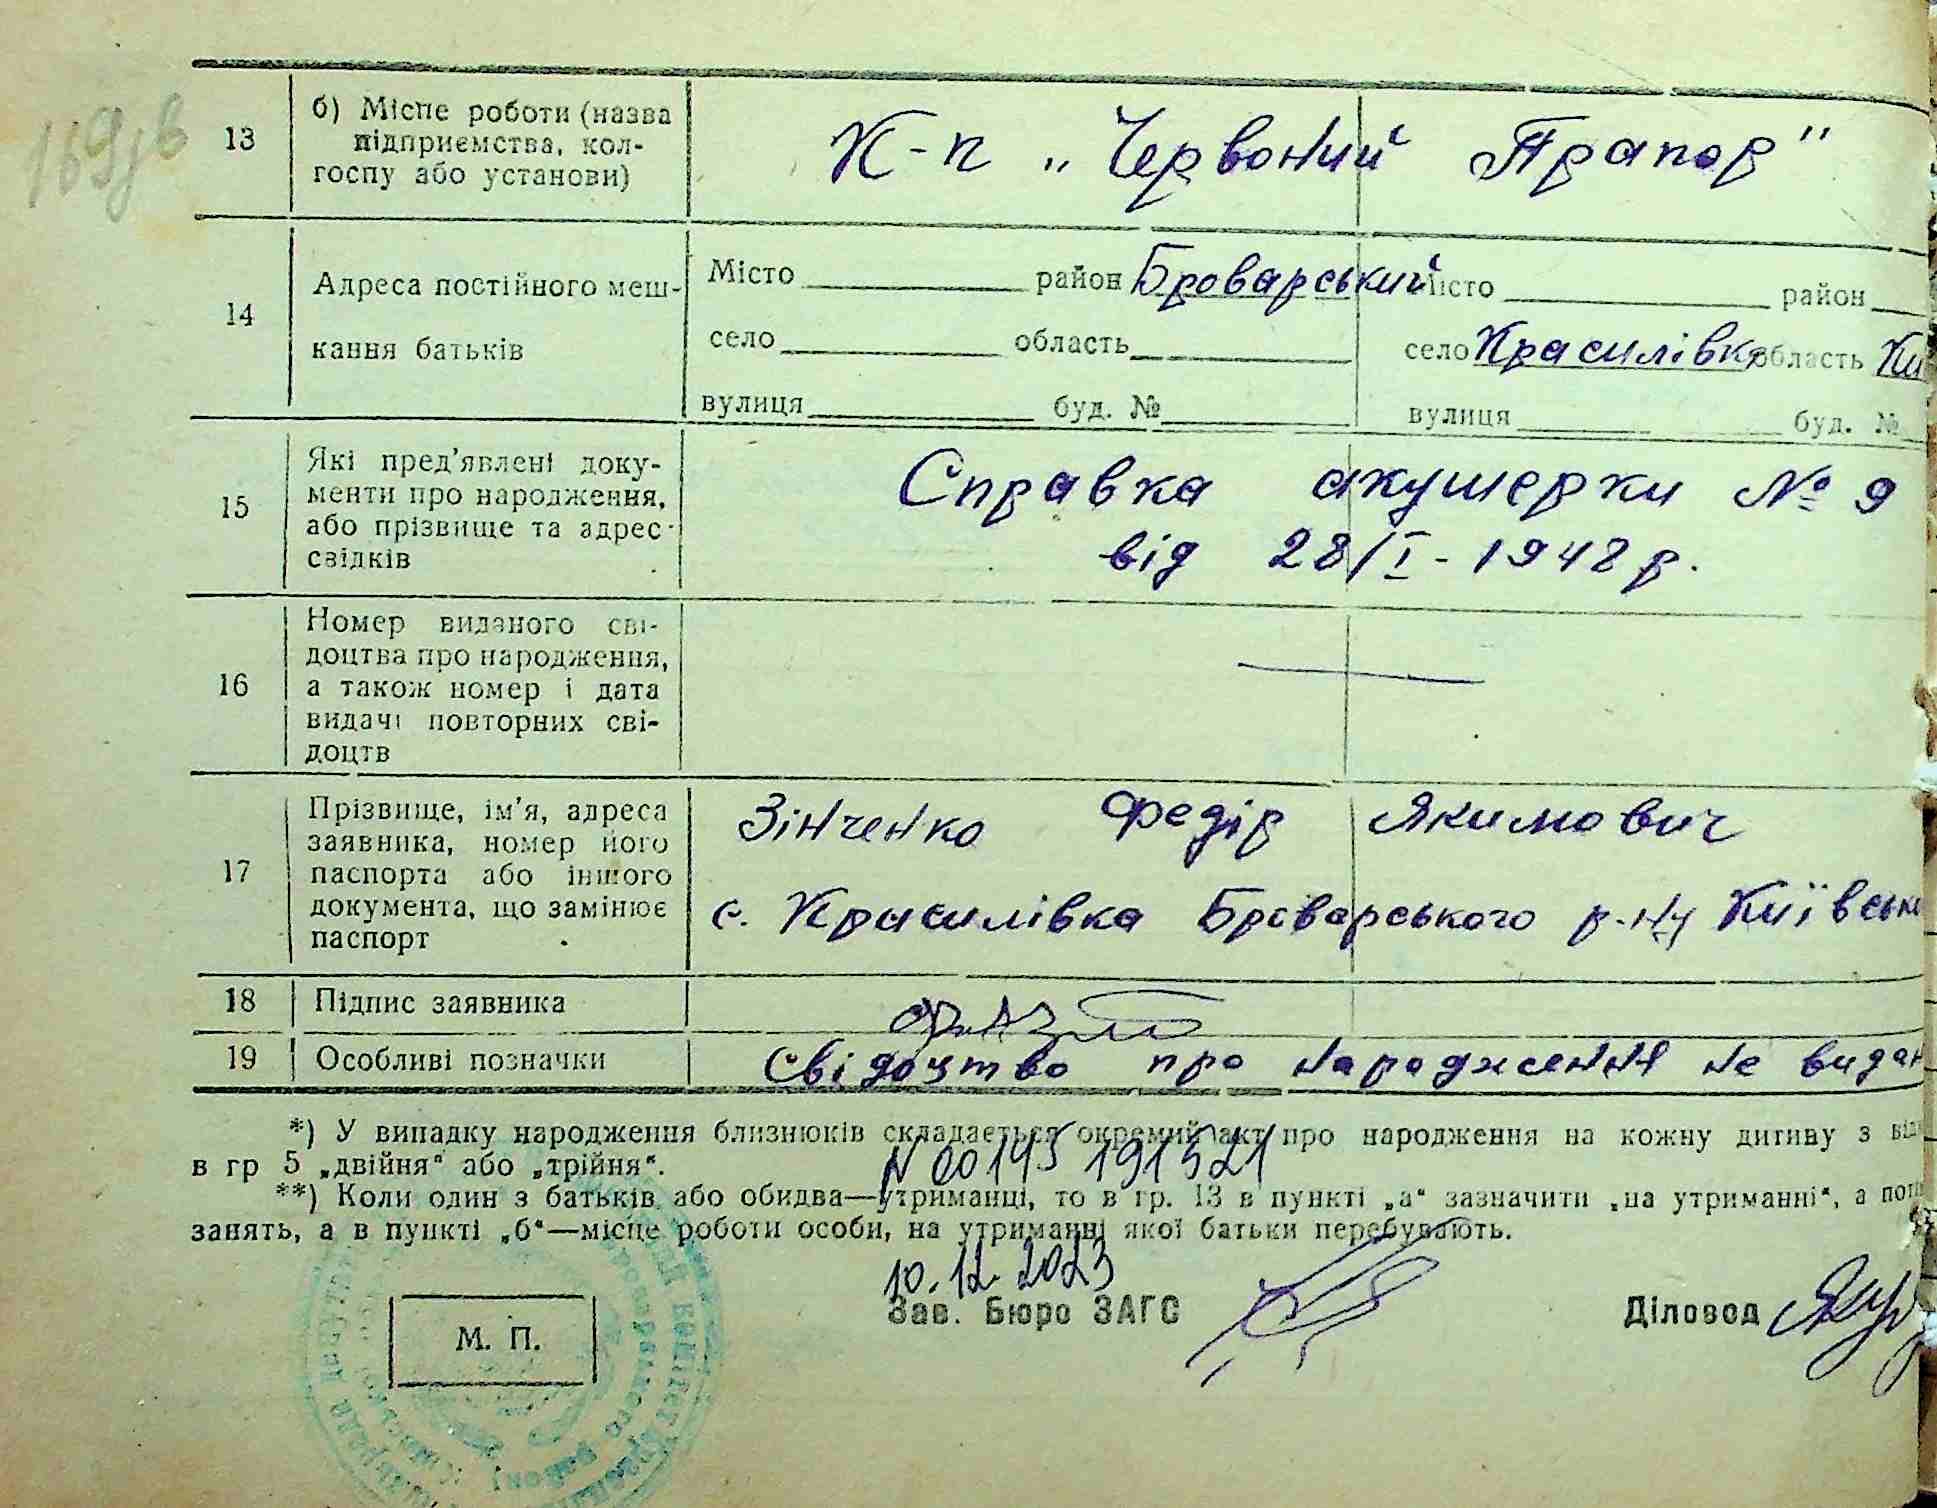 13
б) Місце роботи (назва
підприємства, кол-
госпу або установи)
К-п „Червоний Прапор"
14
Адреса постійного меш-
кання батьків
Місто район Броварський
село область
вулиця буд. №
Місто район
село Красилівка область Ки
вулиця буд. №
15
Які пред'явлені доку-
менти про народження,
або прізвище та адрес
свідків
Справка акушерки № 9
від 28/I - 1948 р.
16
Номер виданого сві-
доцтва про народження,
а також номер і дата
видачі повторних сві-
доцтв
17
Прізвище, ім'я, адреса
заявника, номер його
паспорта або іншого
документа, що замінює
паспорт
Зінченко Федір Якимович
с. Красилівка Броварського р-ну Київськ
18 Підпис заявника
19 Особливі позначки
Свідоцтво про народження не видан
*) У випадку народження близнюків складається окремий акт про народження на кожну дитину з від
в гр 5 „двійня" або „трійня".
N 00145 191521
**) Коли один з батьків або обидва—утриманці, то в гр. 13 в пункті „а" зазначити „на утриманні", а пот
занять, а в пункті „б"—місце роботи особи, на утриманні якої батьки перебувають.
10.12.2023
М. П.
Зав. Бюро ЗАГС
Діловод